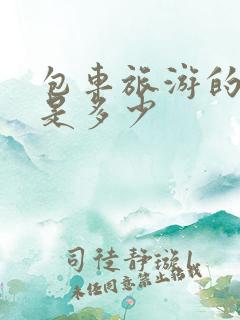 包车旅游的
是多少
司徒静璇|
未经同意禁止转载